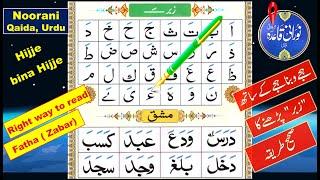 Noorani
Qaida, Urdu
Hijje
bina Hijje
Right way to read
Fatha ( Zabar)
زبر
اَ بَ تَ ثَ جَ حَ خَ
دَ ذَ رَ زَ سَ شَ صَ ضَ
طَ ظَ عَ غَ فَ قَ كَ لَ
مَ نَ وَ هَ ءَ يَ
مشق
دَرَسَ وَدَعَ عَبَدَ كَسَبَ
دَخَلَ بَلَغَ وَجَدَ سَجَدَ
نورانی قاعدہ
ہجے و بنا ہجے کے ساتھ
"زبر" پڑھنے کا
صحیح طریقہ